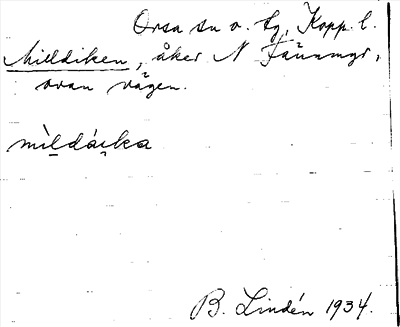 Orsa sn o. tg, Kopp. l.
Milldiken, åker N Fäunmyr,
ovan vägen.
mìldáịka
B. Lindén 1934.